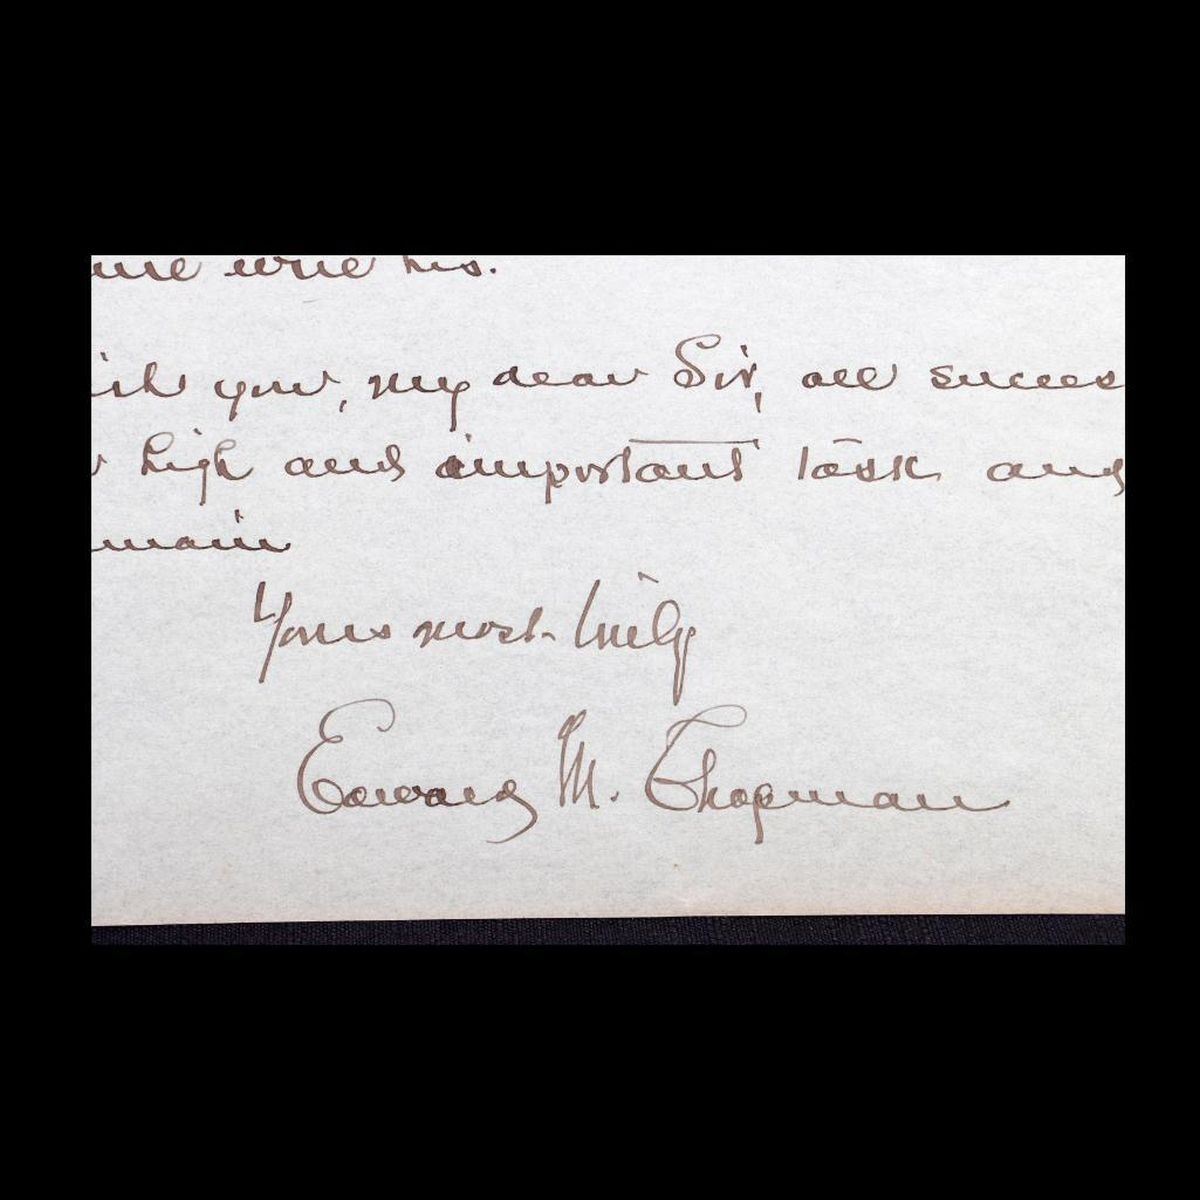 his.
you, my dear Sir, all succes
high and important task and
main
Yours most truly
Edward M. Chapman